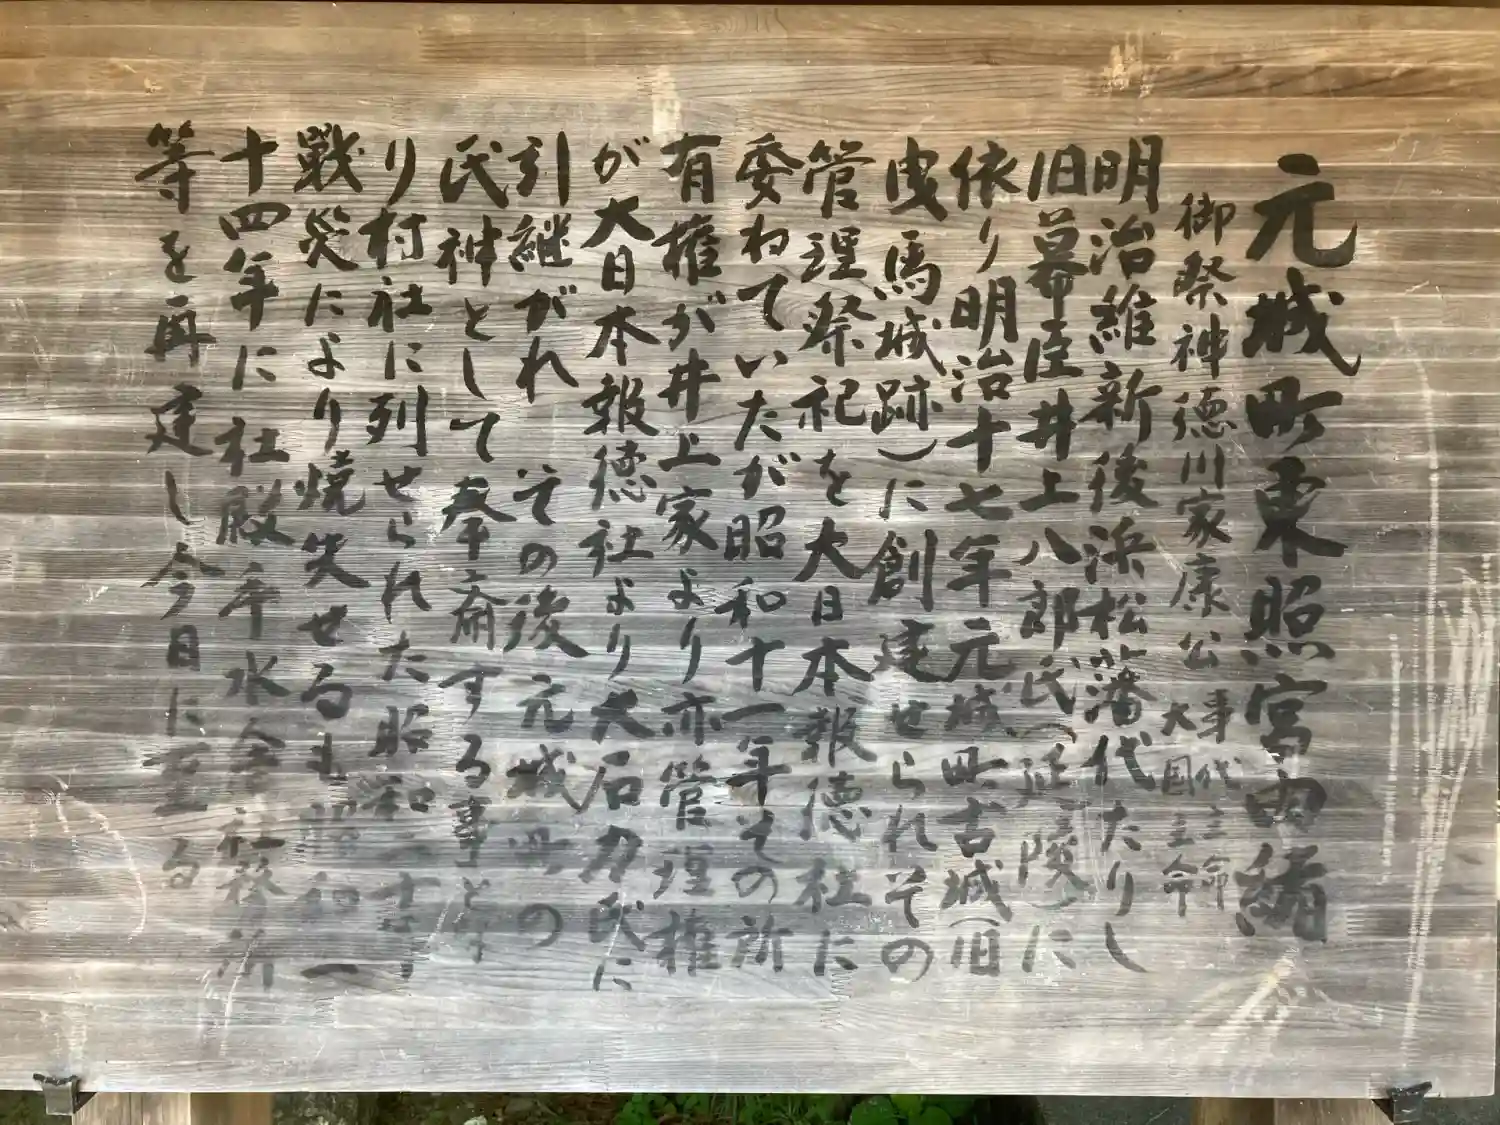 元城町東照宮由緒
御祭神徳川家康公 事代主命
大国主命
明治維新後浜松藩代たりし
旧幕臣井上八郎氏(延陵)に
依り明治十七年元城町古城(旧
曳馬城跡)に創建せられその
管理祭祀を大日本報徳社に
委ねていたが昭和十一年その所
有権が井上家より亦管理権
が大日本報徳社より大石力氏に
引継がれ その後元城町の
氏神として奉斎する事と
り村社に列せられた昭和二十
戦災により焼失せるも 昭和
十四年に社殿手水舎社務所
等を再建し今日に至る